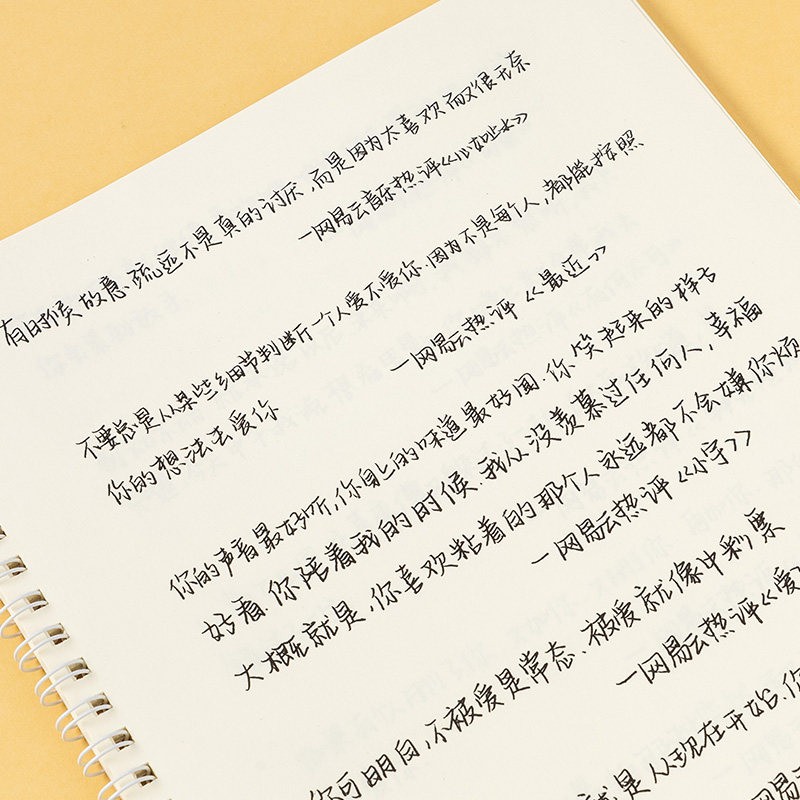 有时候故意疏远不是真的讨厌,而是因为太喜欢而又很无奈
—网易云音乐热评《心如止水》
不要总是从某些细节判断一个人爱不爱你.因为不是每个人,都能按照
你的想法去爱你
—网易云热评《最近》
你的声音最好听,你身上的味道最好闻.你笑起来的样子
好看.你陪着我的时候.我从没羡慕过任何人,幸福
大概就是,你喜欢粘着的那个人永远都不会嫌你烦
—网易云热评《小宇》
你可明白,不被爱是常态.被爱就像中彩票
—网易云热评《爱
就是从现在开始.你